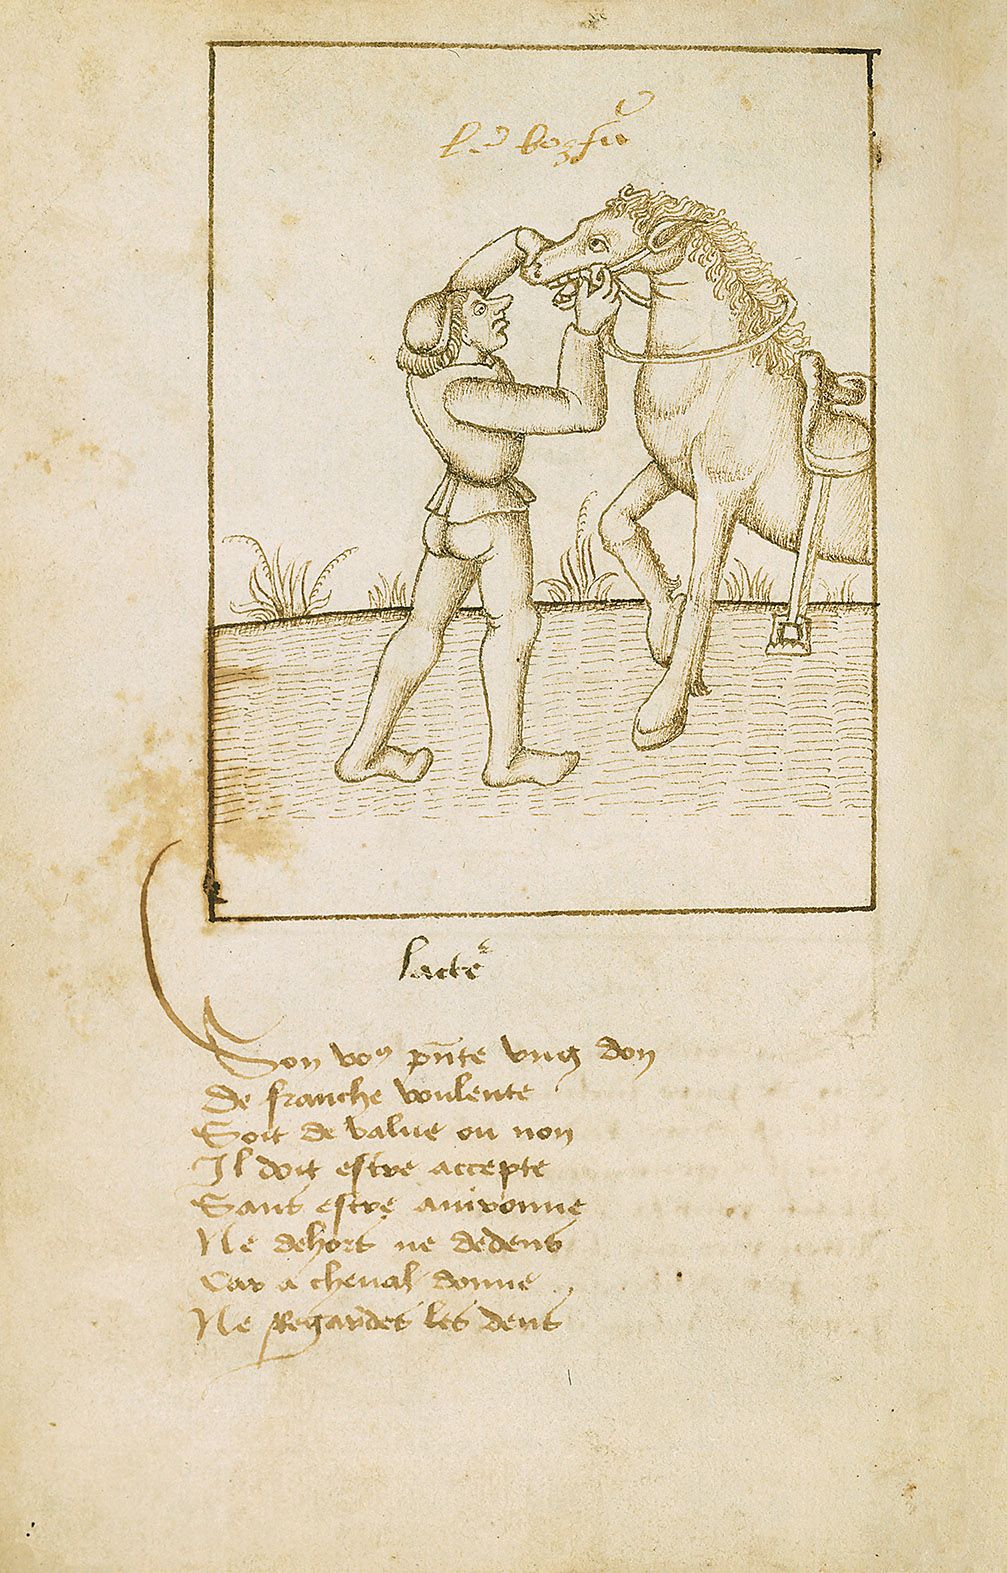 lacte
Son vo⁹ pñte ung don
De franche voulente
Soit de value ou non
Il doit estre accepte
Sans estre avironne
Ne dehors ne dedens
Car a cheval donne
Ne Regardes les dens